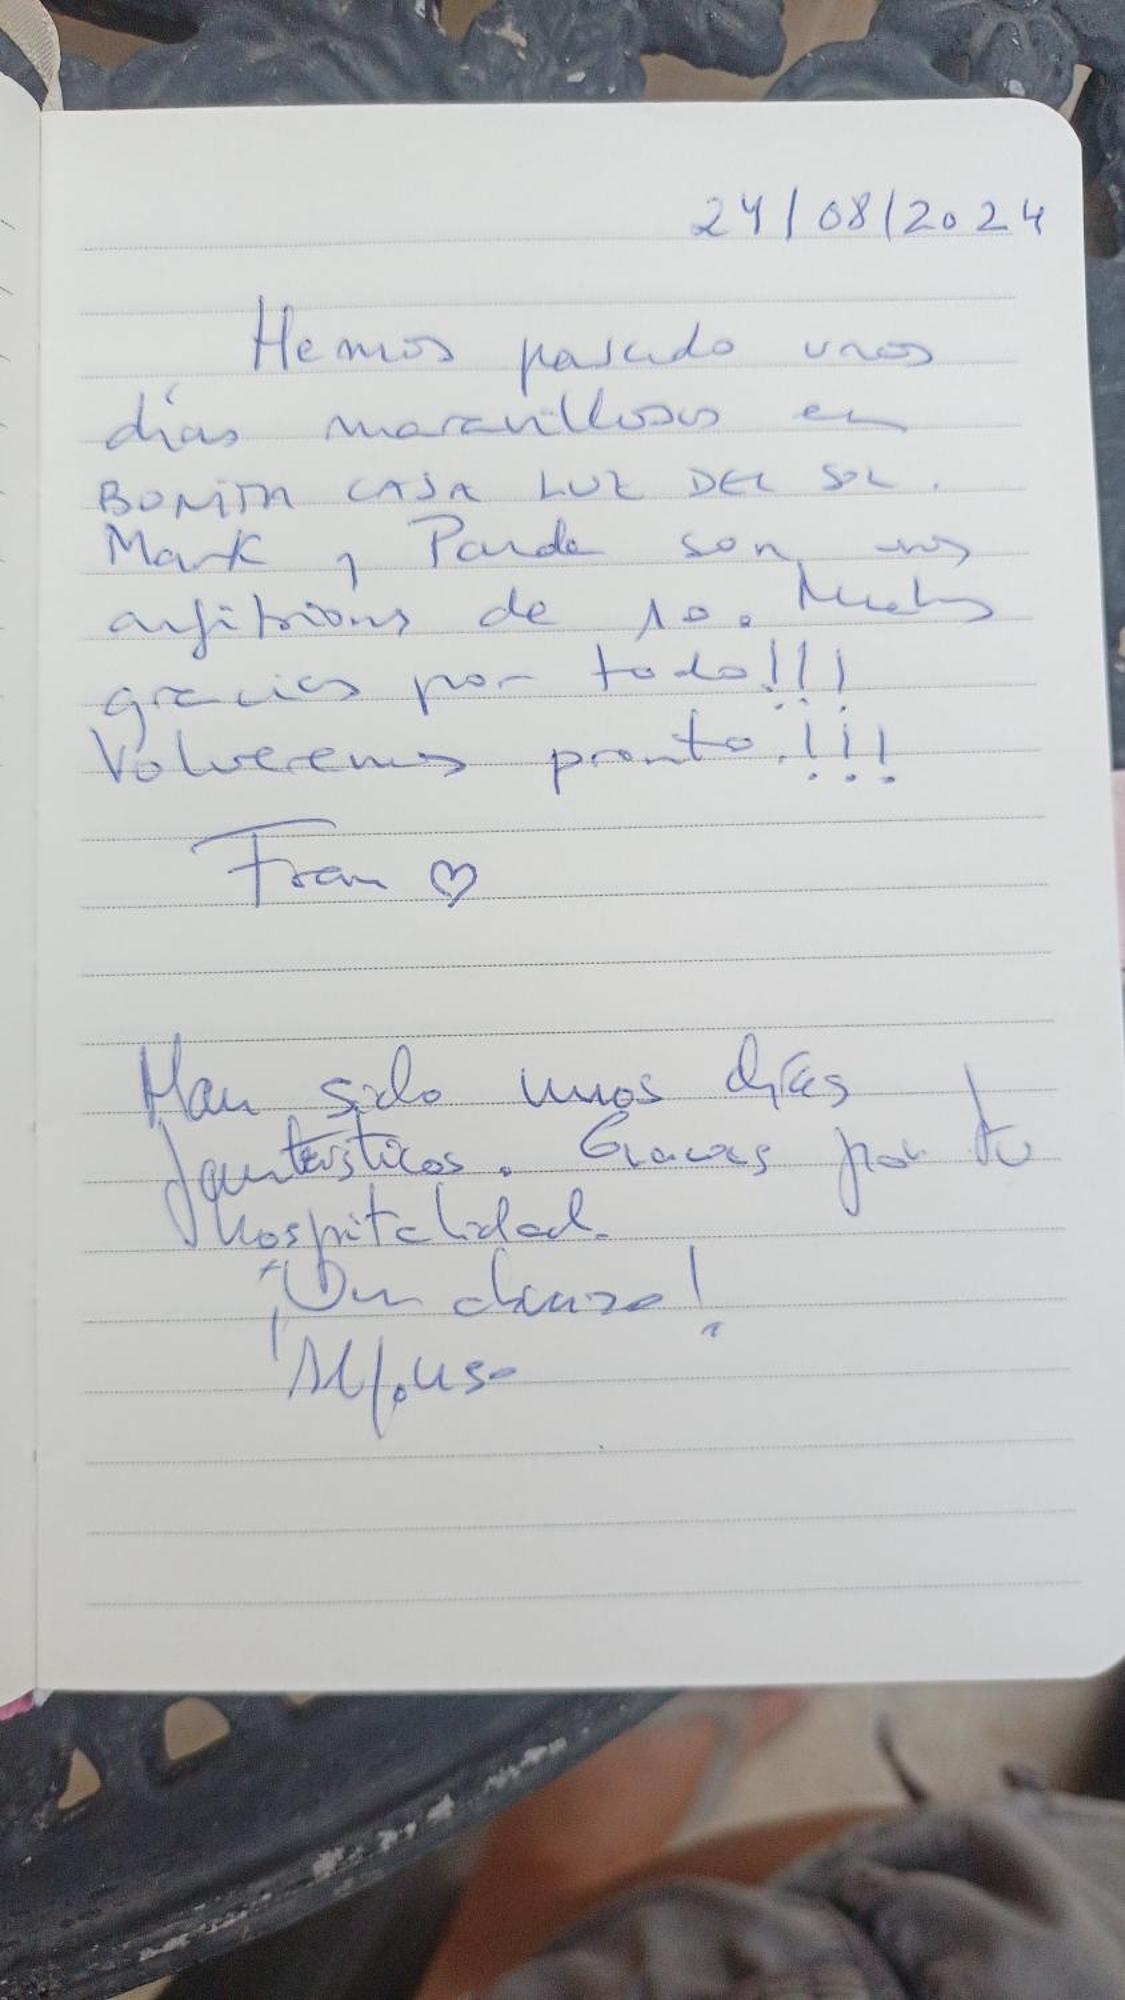 24/08/2024
Hemos pasado unos
días maravillosos en
BONITA CASA LUZ DEL SOL.
Mark y son unos
anfitriones de 10. Muchas
gracias por todo!!!
Volveremos pronto!!!
Fran ♡
Han sido unos días
fantásticos. Gracias por tu
hospitalidad.
¡Un abrazo!
Alfonso